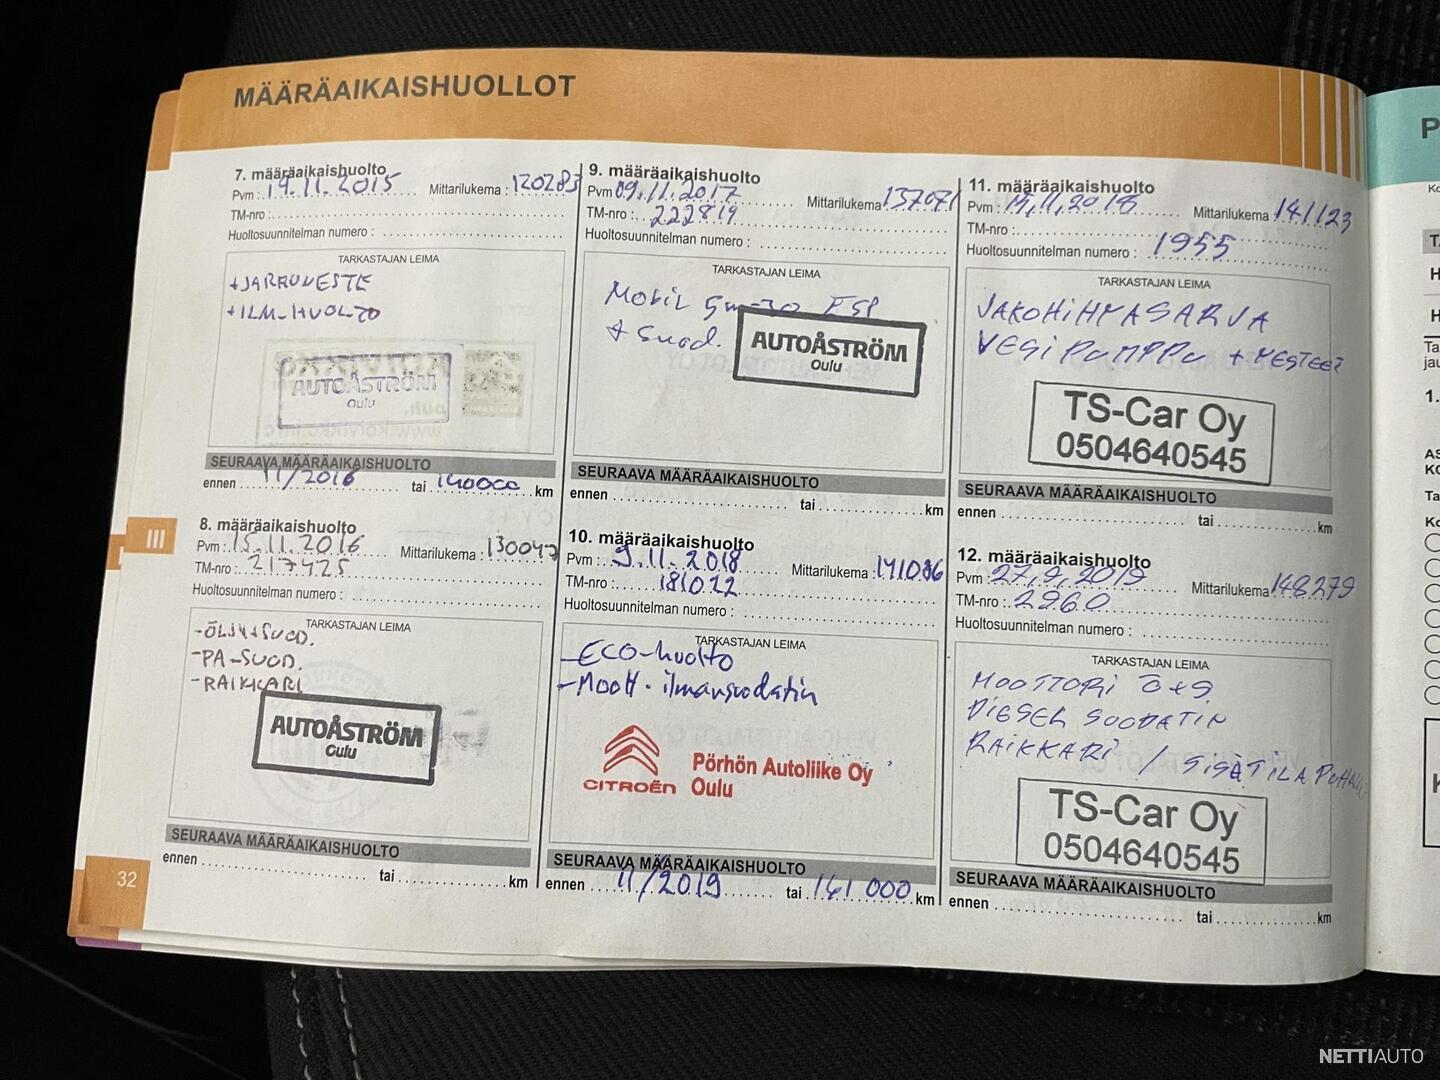 MÄÄRÄAIKAISHUOLLOT
7. määräaikaishuolto
Pvm : 19.11.2015 Mittarilukema : 120283
TM-nro :
Huoltosuunnitelman numero :
TARKASTAJAN LEIMA
+JARRUNESTE
+ILM-HUOLTO
AUTOÅSTRÖM
Oulu
SEURAAVA MÄÄRÄAIKAISHUOLTO
ennen 11/2016 tai 140000 km
8. määräaikaishuolto
Pvm : 15.11.2016 Mittarilukema : 130047
TM-nro : 217425
Huoltosuunnitelman numero :
TARKASTAJAN LEIMA
-ÖLJY+SUOD.
-PA-SUOD.
-RAIKKARI
AUTOÅSTRÖM
Oulu
SEURAAVA MÄÄRÄAIKAISHUOLTO
ennen tai km
32
III
9. määräaikaishuolto
Pvm 09.11.2017 Mittarilukema 137071
TM-nro : 222819
Huoltosuunnitelman numero :
TARKASTAJAN LEIMA
Mobil 5w-30 ESP
+ Suod.
AUTOÅSTRÖM
Oulu
SEURAAVA MÄÄRÄAIKAISHUOLTO
ennen tai km
10. määräaikaishuolto
Pvm : 9.11.2018 Mittarilukema : 141086
TM-nro : 181022
Huoltosuunnitelman numero :
TARKASTAJAN LEIMA
-ECO-huolto
-Moott. ilmansuodatin
CITROËN Pörhön Autoliike Oy
Oulu
SEURAAVA MÄÄRÄAIKAISHUOLTO
ennen 11/2019 tai 161 000 km
11. määräaikaishuolto
Pvm : 15,11,2018 Mittarilukema 141123
TM-nro:
Huoltosuunnitelman numero : 1955
TARKASTAJAN LEIMA
JAKOHIHNASARJA
VESIPUMPPU + NESTEET
TS-Car Oy
0504640545
SEURAAVA MÄÄRÄAIKAISHUOLTO
ennen tai km
12. määräaikaishuolto
Pvm : 27,9,2019 Mittarilukema 148279
TM-nro : 2960
Huoltosuunnitelman numero :
TARKASTAJAN LEIMA
MOOTTORI Ö+S
DIESEL SUODATIN
RAIKKARI / SISÄTILA
TS-Car Oy
0504640545
SEURAAVA MÄÄRÄAIKAISHUOLTO
ennen tai km
NETTIAUTO